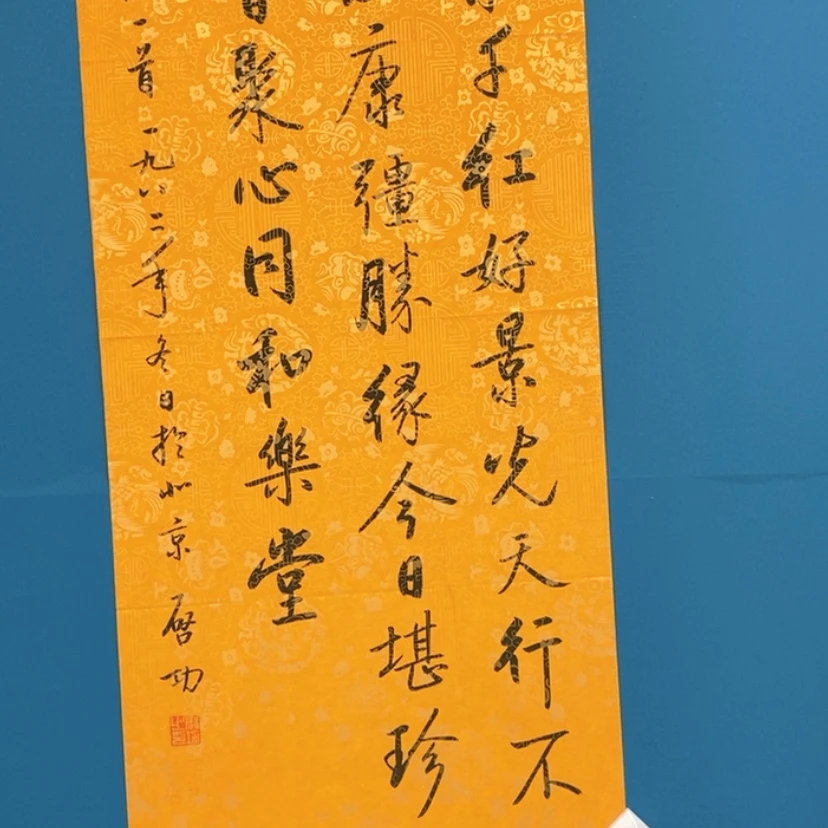 千紅好景光天行不
康彊勝緣今日堪珍
聚心同和樂堂
一首 一九八二年冬日於北京 啓功